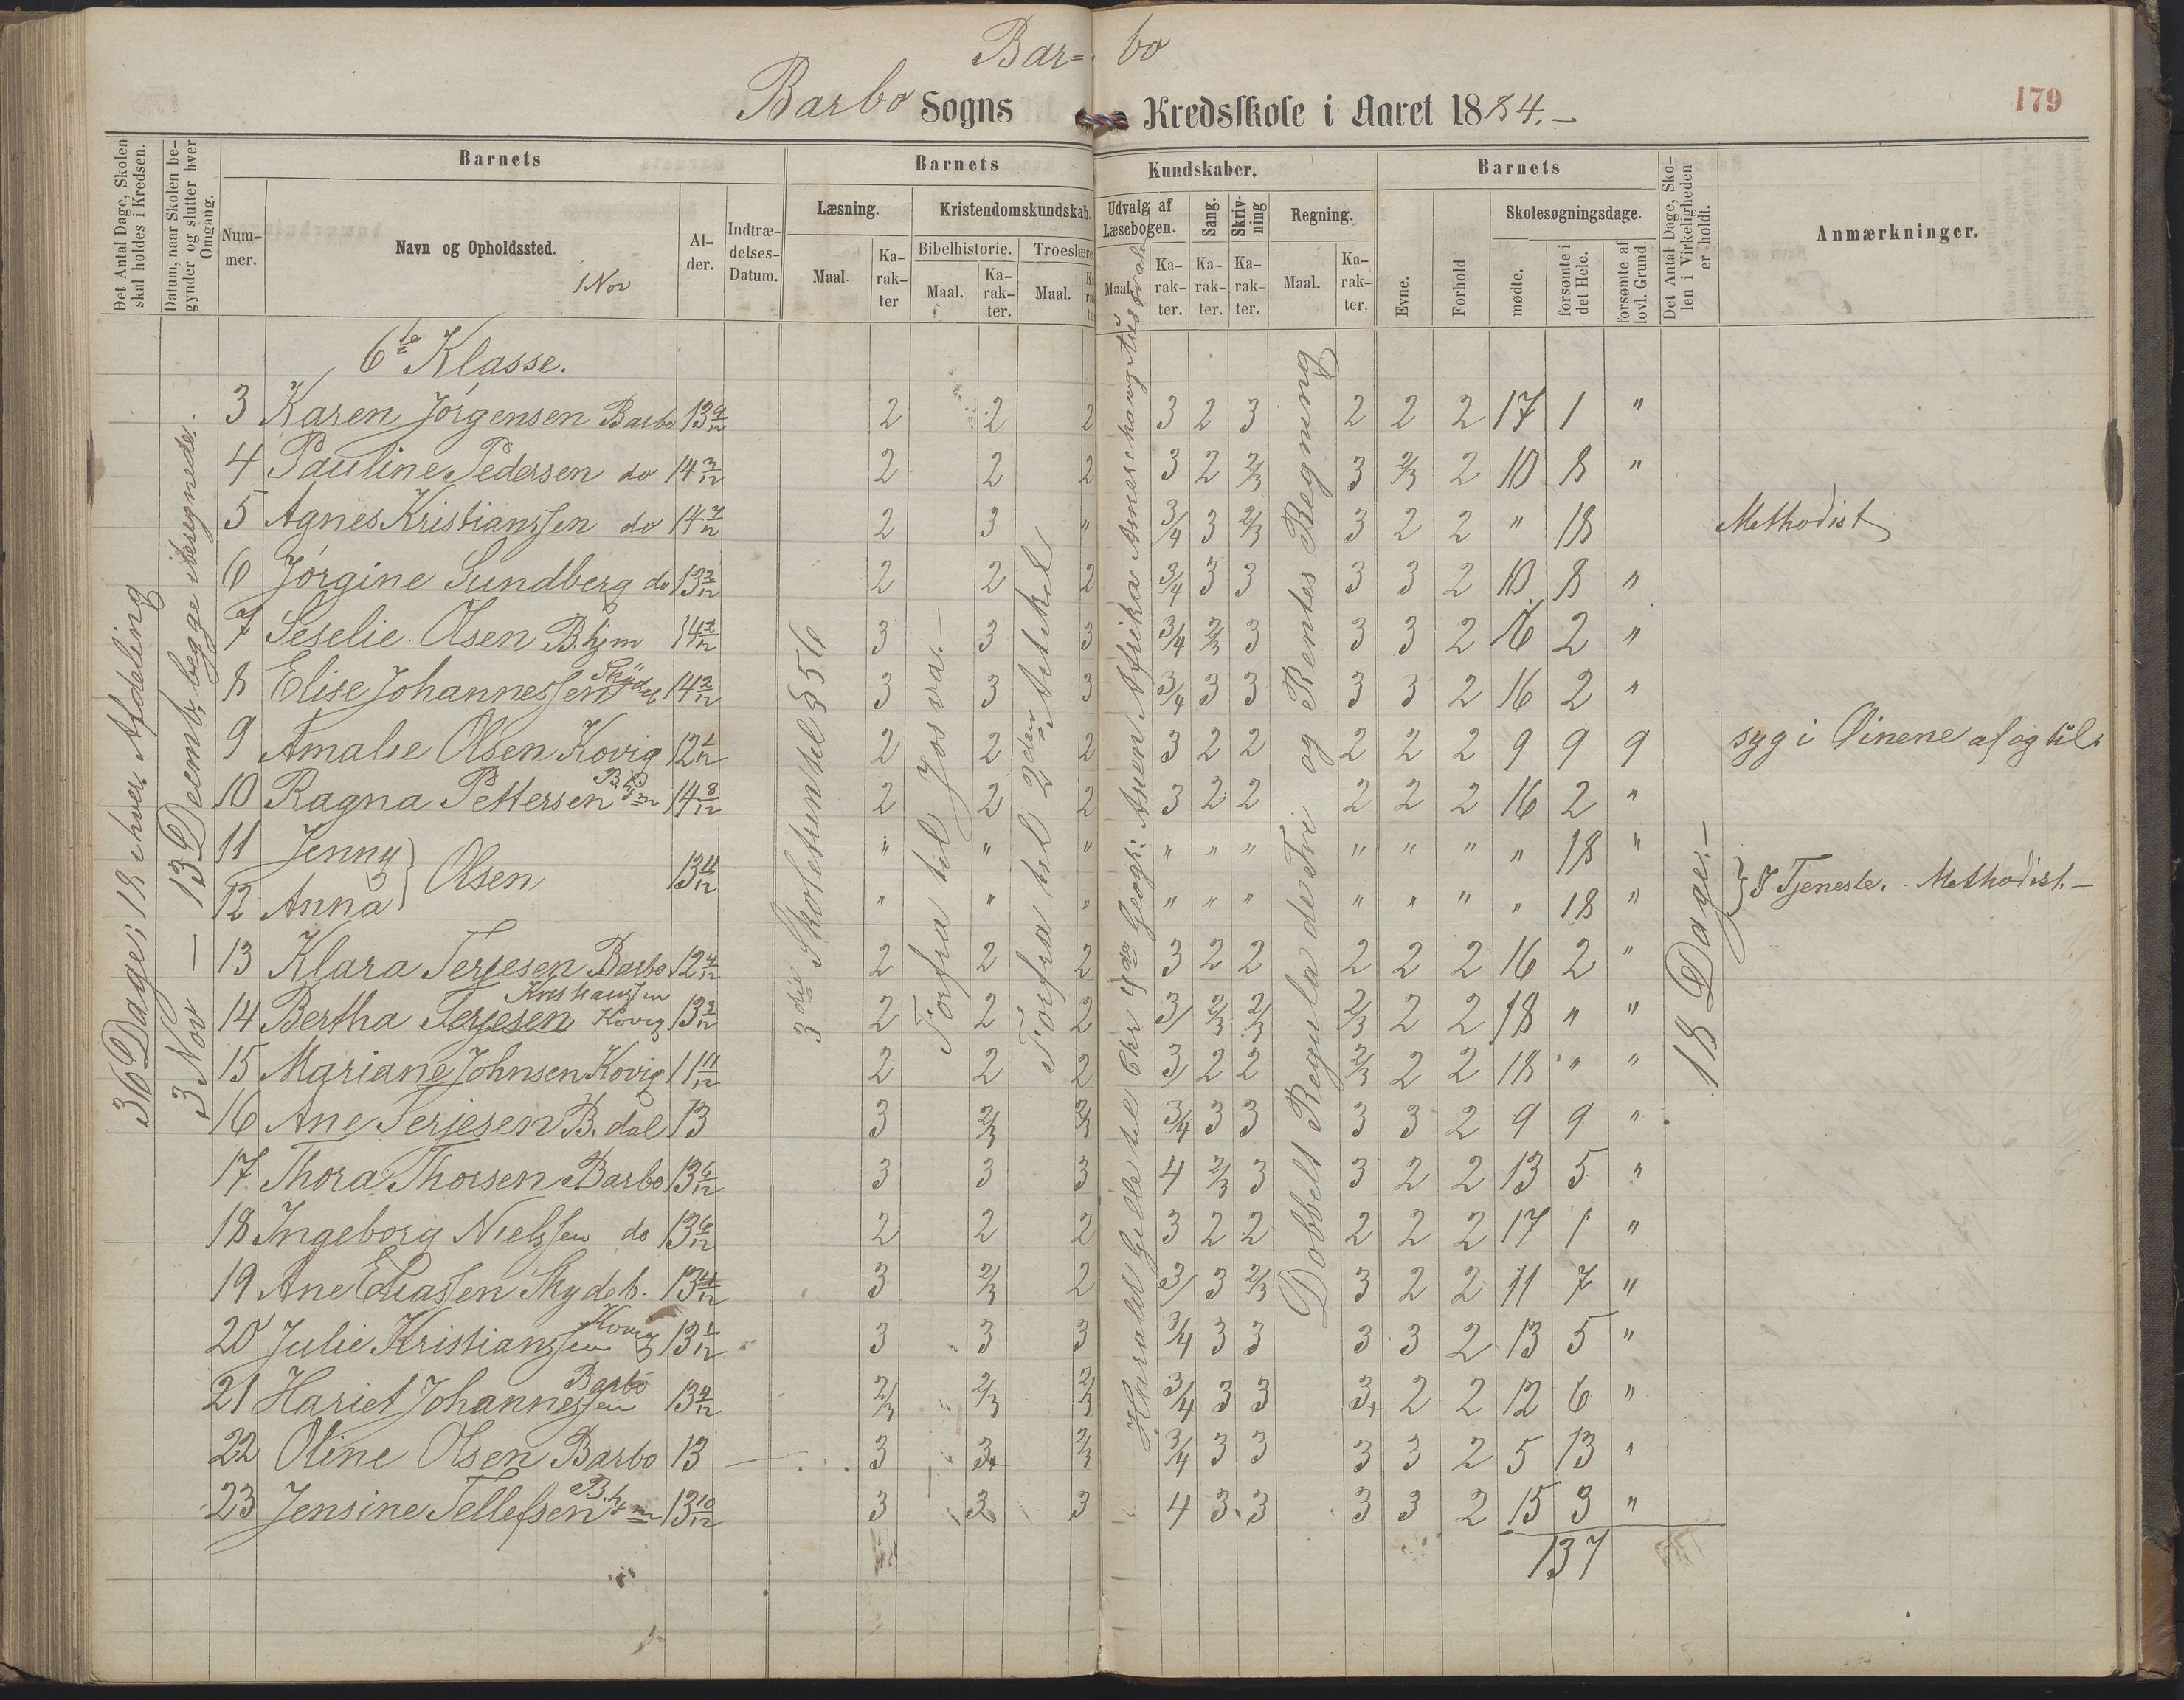 Bar= bo
Barbo Sogns Kredsskole i Aaret 1884.-
179
Det Antal Dage, Skolen skal holdes i Kredsen.
Datum, naar Skolen begynder og slutter hver Omgang.
Barnets
Nummer.
Navn og Opholdssted.
1 Nov
Alder.
Indtrædelses-Datum.
Barnets Kundskaber.
Læsning.
Maal.
Karakter
Kristendomskundskab.
Bibelhistorie.
Maal.
Karakter.
Troeslære.
Maal.
Udvalg af Læsebogen.
Maal.
Karakter.
Sang.
Karakter.
Skrivning
Karakter.
Regning.
Maal.
Karakter.
Barnets
Evne.
Forhold
Skolesøgningsdage.
mødte.
forsømte i det Hele.
forsømte af lovl. Grund.
Det Antal Dage, Skolen i Virkeligheden er holdt.
Anmærkninger.
36 Dage; 18 i hver Afdeling
3 Nov — 13 Decemb; begge iberegnede.
3die Skoletrin til § 56
Forfra til Josva.-
Forfra til 2den Artikel
Harald Gille til Chr 4de Geogr: Asien Afrika
Dobbelt Regula de Tri og Rentes Regning
18 Dage.-
6te Klasse.
3 Karen Jörgensen Barbo 13 9/12 2 2 2 3 2 3 2 2 2 17 1 "
4 Pauline Pedersen do 14 3/12 2 2 2 3 2 2/3 3 2/3 2 10 8 "
5 Agnes Kristianssen do 14 7/12 2 3 " 3/4 3 2/3 3 2 2 " 18 Methodist
6 Jörgine Sundberg do 13 2/12 2 2 2 3/4 3 3 3 3 2 10 8 "
7 Seselie Olsen B.hjm 14 2/12 3 3 3 3/4 2/3 3 3 3 2 16 2 "
8 Elise Johannessen Skydeb 14 2/12 3 3 3 3/4 3 3 3 3 2 16 2 "
9 Amalie Olsen Kovig 12 1/12 2 2 2 3 2 2 2 2 2 9 9 9 syg i Øinene af og til.
10 Ragna Pettersen B.hjm 14 8/12 2 2 2 3 2 2 2 2 2 16 2 "
11 Jenny } Olsen 13 11/12 " " " " " " " " " " 18 "
12 Anna " " " " " " " " " " 18 " } I Tjeneste. Methodist.-
13 Klara Terjesen Barbo 12 4/12 2 2 2 3 2 2 2 2 2 16 2 "
14 Bertha Terjesen Kristianssen Kovig 13 2/12 2 2 2 3/ 2/3 2/3 2/3 2 2 18 " "
15 Mariane Johnsen Kovig 11 11/12 2 2 2 3/ 2 2 2/3 2 2 18 " "
16 Ane Terjesen B. dal 13 3 2/3 2/3 3/4 3 3 3 3 2 9 9 "
17 Thora Thorsen Barbo 13 6/12 3 3 3 4 2/3 3 3 2 2 13 5 "
18 Ingeborg Nielssen do 13 6/12 2 2 2 3 2 2 2 2 2 17 1 "
19 Ane Eliassen Skydeb. 13 4/12 3 2/3 2 3/ 3 2/3 3 2 2 11 7 "
20 Julie Kristianssen Kovig 13 1/12 3 3 3 3/4 3 3 3 3 2 13 5 "
21 Hariet Johannessen Barbo 13 4/12 2/3 2/3 2/3 3/4 3 3 3+ 2 2 12 6 "
22 Oline Olsen Barbo 13 3 3+ 2/3 3/4 3 3 3 3 2 5 13 "
23 Jensine Tellefsen B.hjm 13 10/12 3 3 3 4 3 3 3 3 2 15 3 "
137